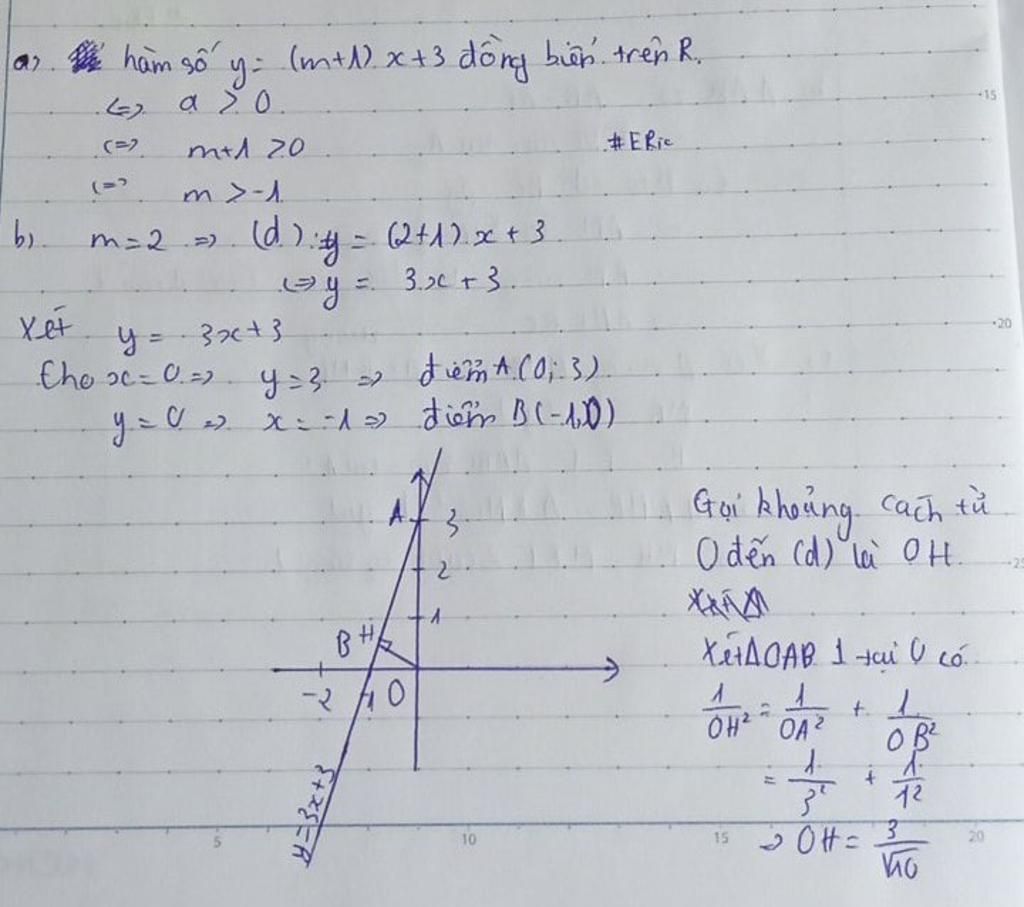 a) hàm số y = (m+1) x + 3 đồng biến trên R.
<=> a > 0
<=> m+1 > 0
#ERic
<=> m > -1
b) m = 2 => (d): y = (2+1).x + 3
<=> y = 3x + 3
Xét y = 3x + 3
Cho x = 0 => y = 3 => điểm A(0; 3)
y = 0 => x = -1 => điểm B(-1,0)
A 3
2
1
B H
-2 -1 O
y = 3x + 3
Gọi khoảng cách từ
O đến (d) là OH
Xét ΔOAB ⊥ tại O có
1/OH² = 1/OA² + 1/OB²
= 1/3² + 1/1²
=> OH = 3/√10
15
20
25
5 10 15 20